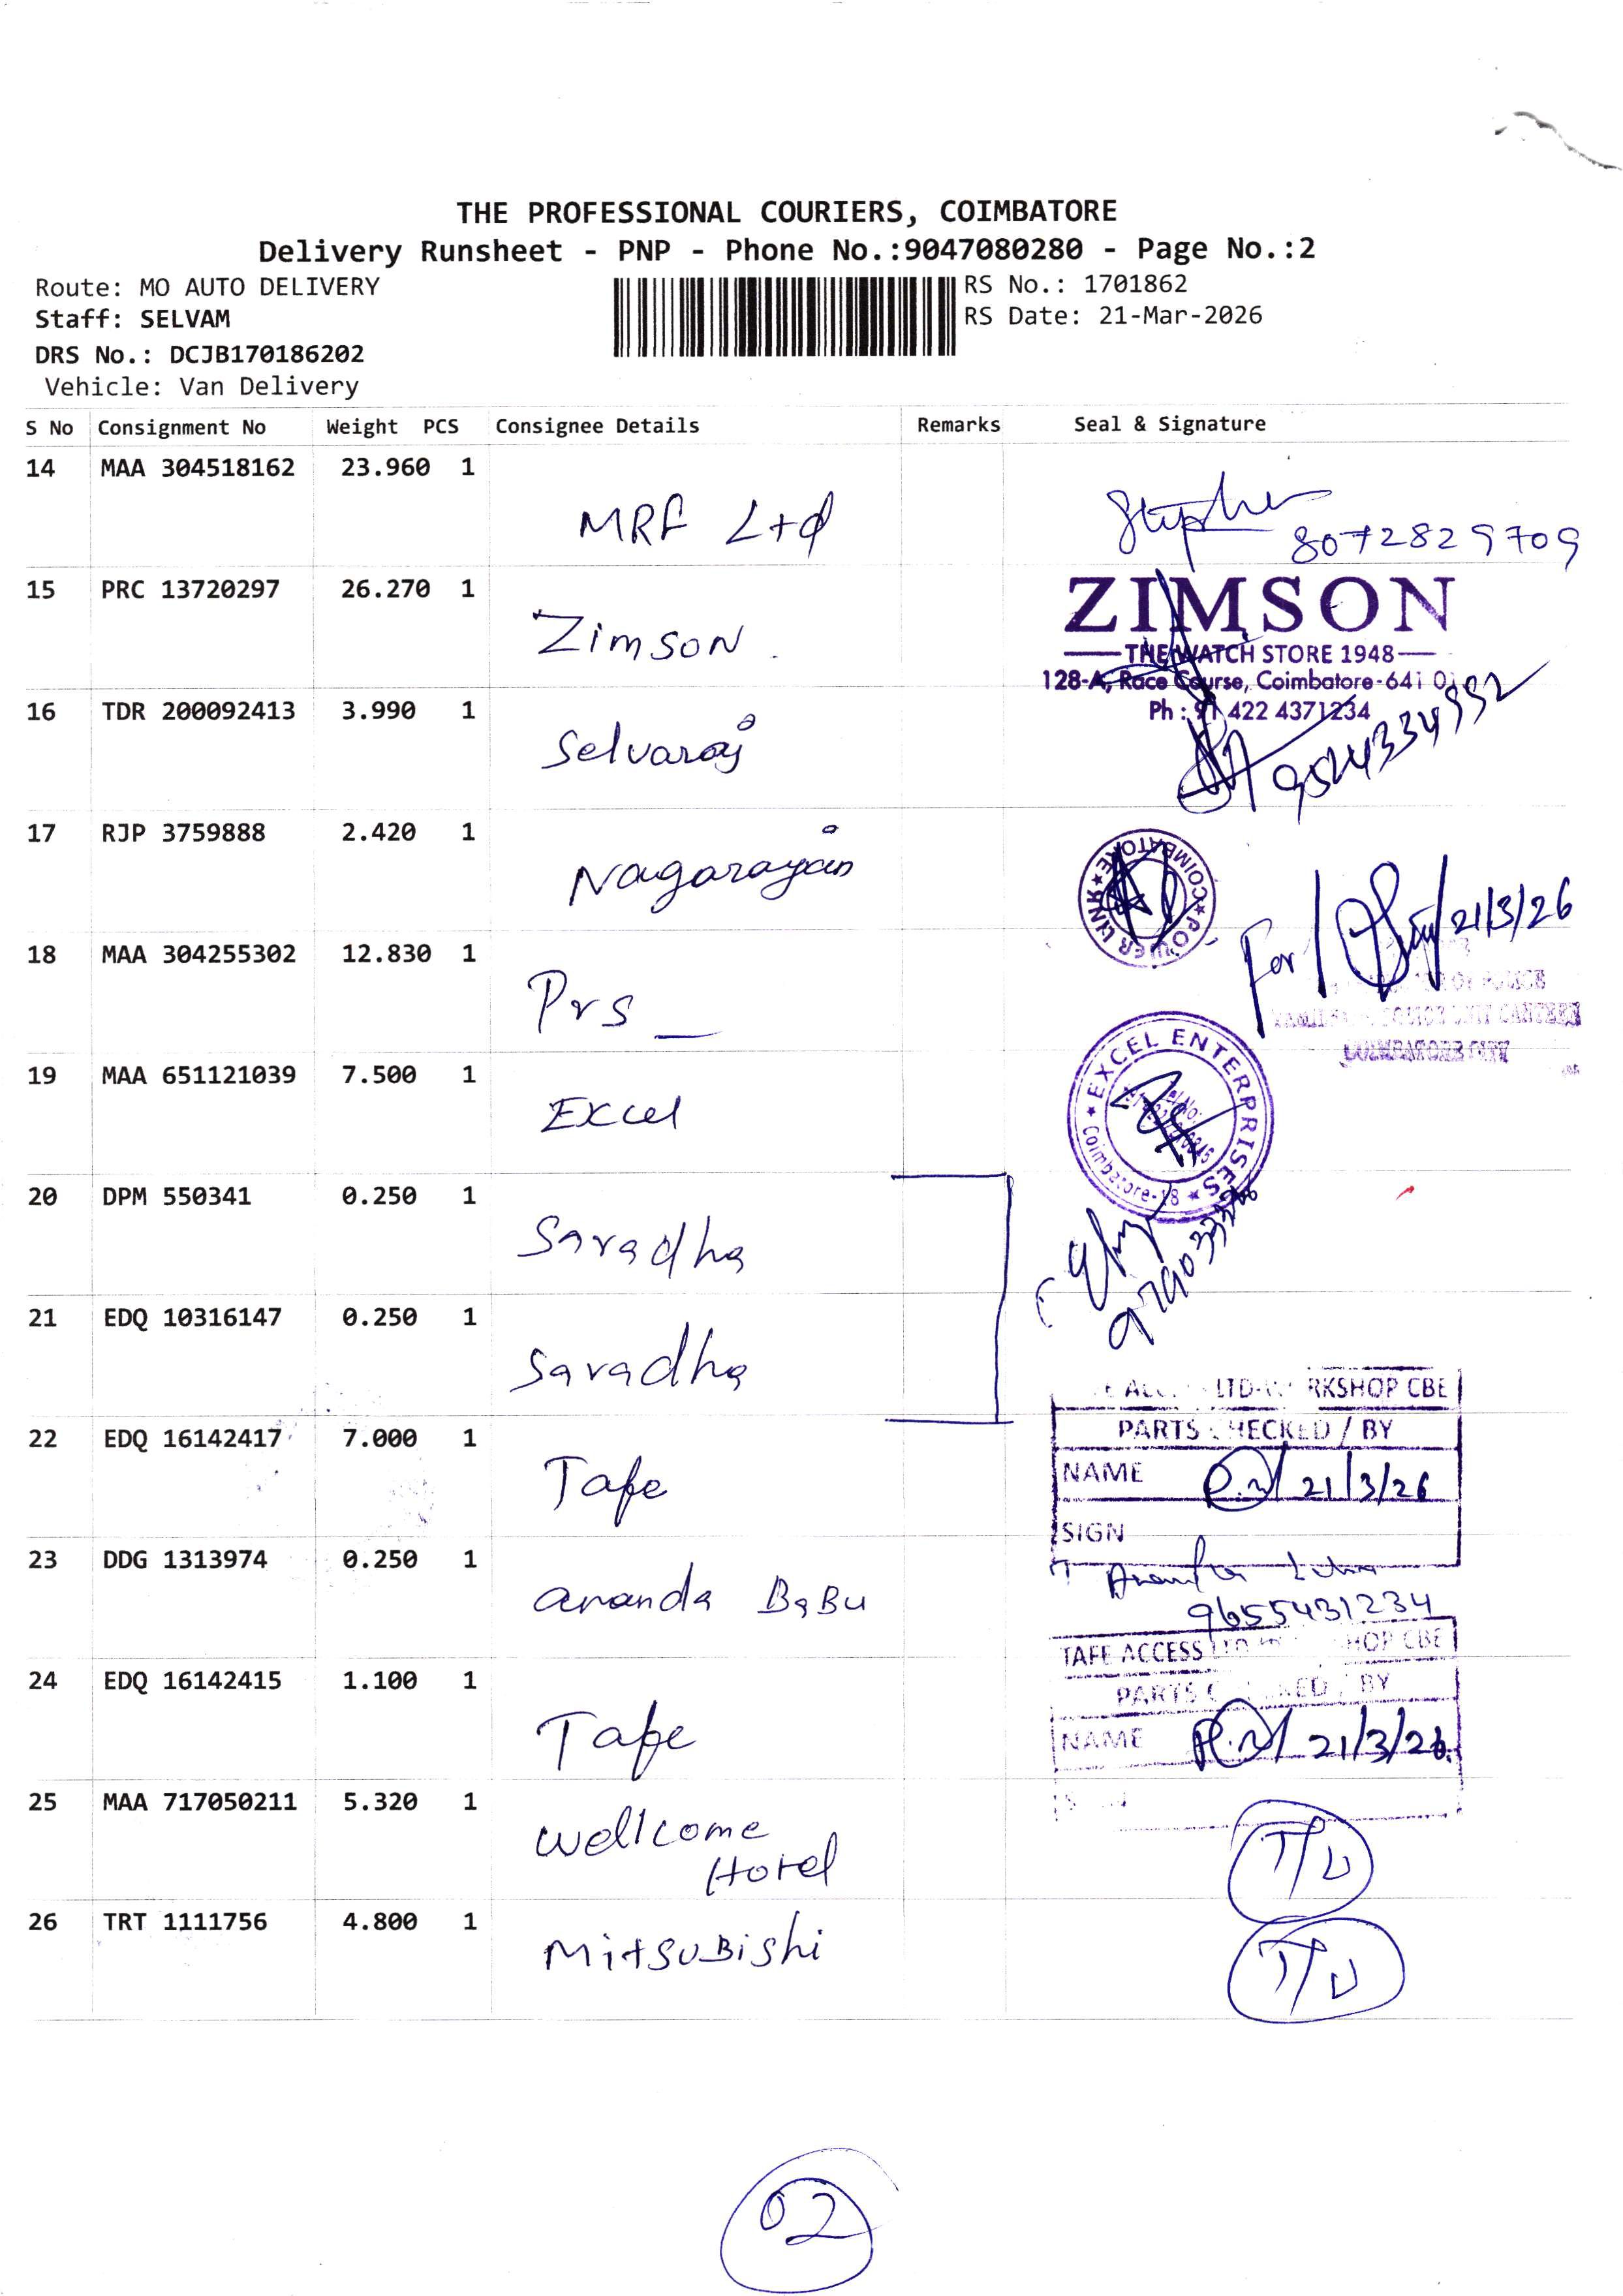 THE PROFESSIONAL COURIERS, COIMBATORE
Delivery Runsheet - PNP - Phone No.:9047080280 - Page No.:2
Route: MO AUTO DELIVERY
RS No.: 1701862
Staff: SELVAM
RS Date: 21-Mar-2026
DRS No.: DCJB170186202
Vehicle: Van Delivery
S No Consignment No Weight PCS Consignee Details Remarks Seal & Signature
14 MAA 304518162 23.960 1
MRF Ltd
8072829709
15 PRC 13720297 26.270 1
Zimson.
ZIMSON
THE WATCH STORE 1948
128-A, Race Course, Coimbatore-641
Ph : 91 422 4371234
16 TDR 200092413 3.990 1
Selvaraj
17 RJP 3759888 2.420 1
Nagarayan
POWER LINK ★ COIMBATORE ★
For 21/3/26
18 MAA 304255302 12.830 1
Prs
19 MAA 651121039 7.500 1
Excel
★ EXCEL ENTERPRISES ★ Coimbatore-18
20 DPM 550341 0.250 1
Saradha
21 EDQ 10316147 0.250 1
Saradha
LTD RKSHOP CBE
PARTS CHECKED / BY
22 EDQ 16142417 7.000 1
Tafe
NAME 21/3/26
SIGN
23 DDG 1313974 0.250 1
Ananda BaBu
9655431234
TAFE ACCESS LTD SHOP CBE
24 EDQ 16142415 1.100 1
PARTS CHECKED / BY
Tafe
NAME 21/3/26
25 MAA 717050211 5.320 1
Wellcome
Hotel
T/U
26 TRT 1111756 4.800 1
MitsuBishi
T/U
02